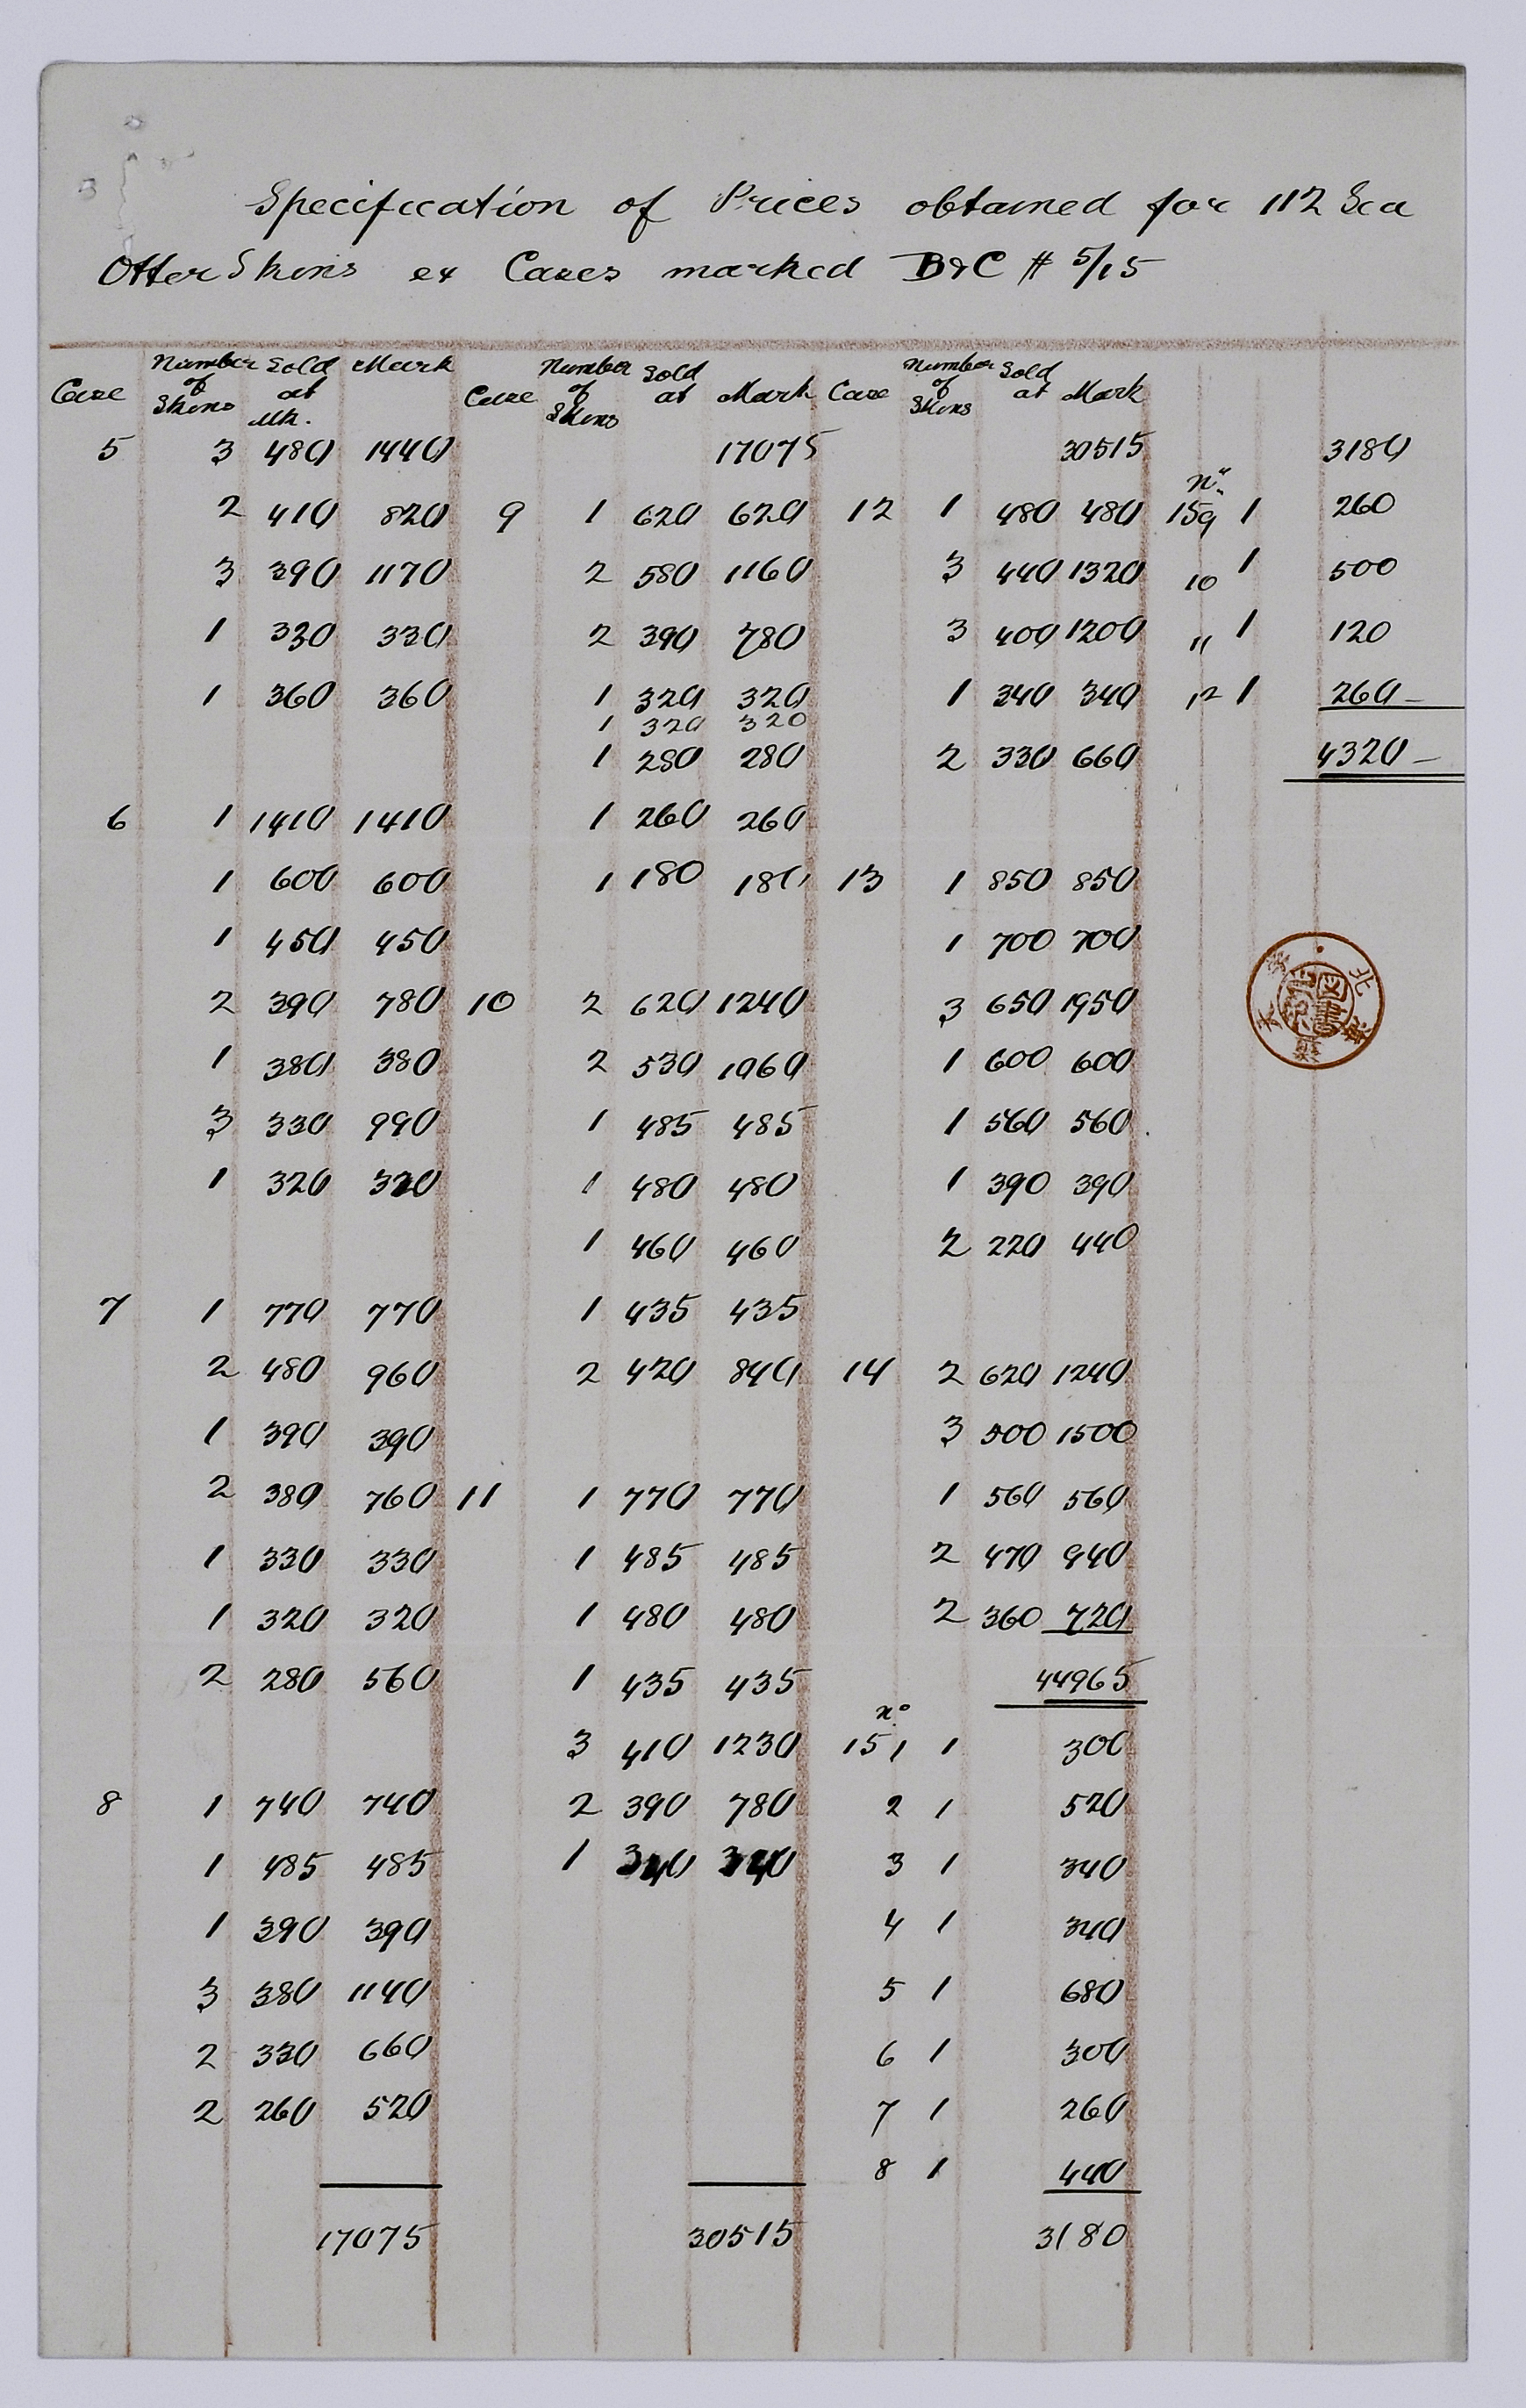 Specification of Prices obtained for 112 Sea
Otter Skins ex Cases marked B&C # 5/15
Case Number of Skins Sold at Mk. Mark Case Number of Skins Sold at Mark Case Number of Skins Sold at Mark
5 3 480 1440 17075 30515 3180
2 410 820 9 1 620 620 12 1 480 480 No. 15 9 1 260
3 390 1170 2 580 1160 3 440 1320 10 1 500
1 330 330 2 390 780 3 400 1200 11 1 120
1 360 360 1 320 320 1 340 340 12 1 260 –
1 320 320
1 280 280 2 330 660 4320 –
6 1 1410 1410 1 260 260
1 600 600 1 180 180 13 1 850 850
1 450 450 1 700 700
2 390 780 10 2 620 1240 3 650 1950
1 380 380 2 530 1060 1 600 600
3 330 990 1 485 485 1 560 560
1 320 320 1 480 480 1 390 390
1 460 460 2 220 440
7 1 770 770 1 435 435
2 480 960 2 420 840 14 2 620 1240
1 390 390 3 500 1500
2 380 760 11 1 770 770 1 560 560
1 330 330 1 485 485 2 470 940
1 320 320 1 480 480 2 360 720
2 280 560 1 435 435 44965
3 410 1230 No. 15 1 1 300
8 1 740 740 2 390 780 2 1 520
1 485 485 1 340 340 3 1 340
1 390 390 4 1 340
3 380 1140 5 1 680
2 330 660 6 1 300
2 260 520 7 1 260
8 1 440
17075 30515 3180
圖書